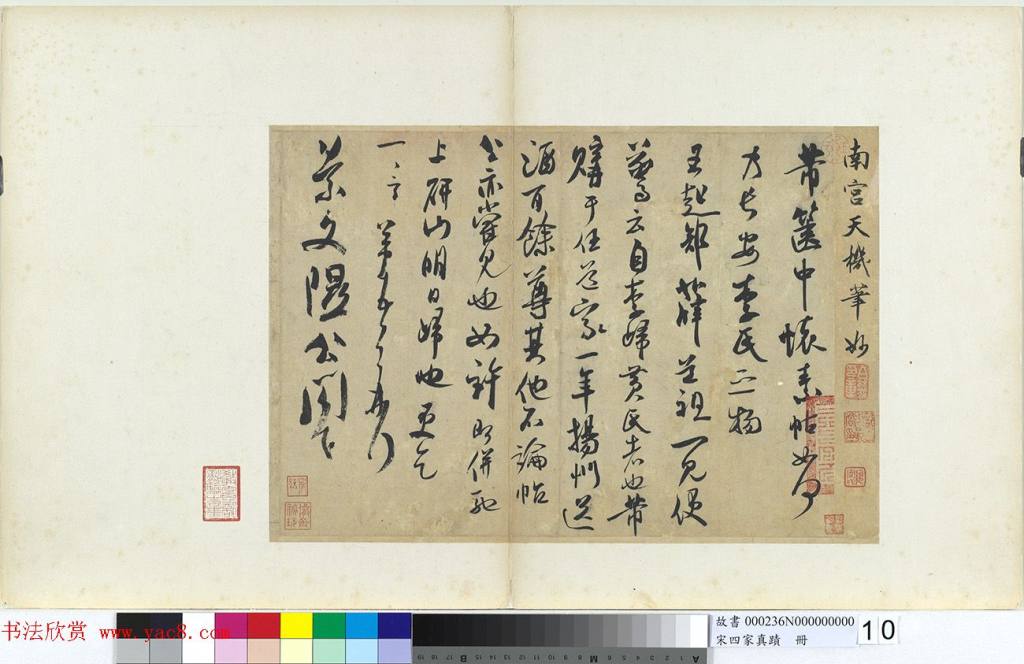 南宮天機筆妙
芾篋中懷素帖如何
乃長安李氏之物
王起部薛道祖一見便
驚云自李歸黃氏者也芾
購于任道家一年揚州送
酒百餘尊其他不論帖
公亦嘗見也如許即併馳
上研山明日歸也更乞
一言芾頓首再拜
景文隰公閤下
书法欣赏 www.yac8.com
故書 000236N000000000
宋四家真蹟 冊
10